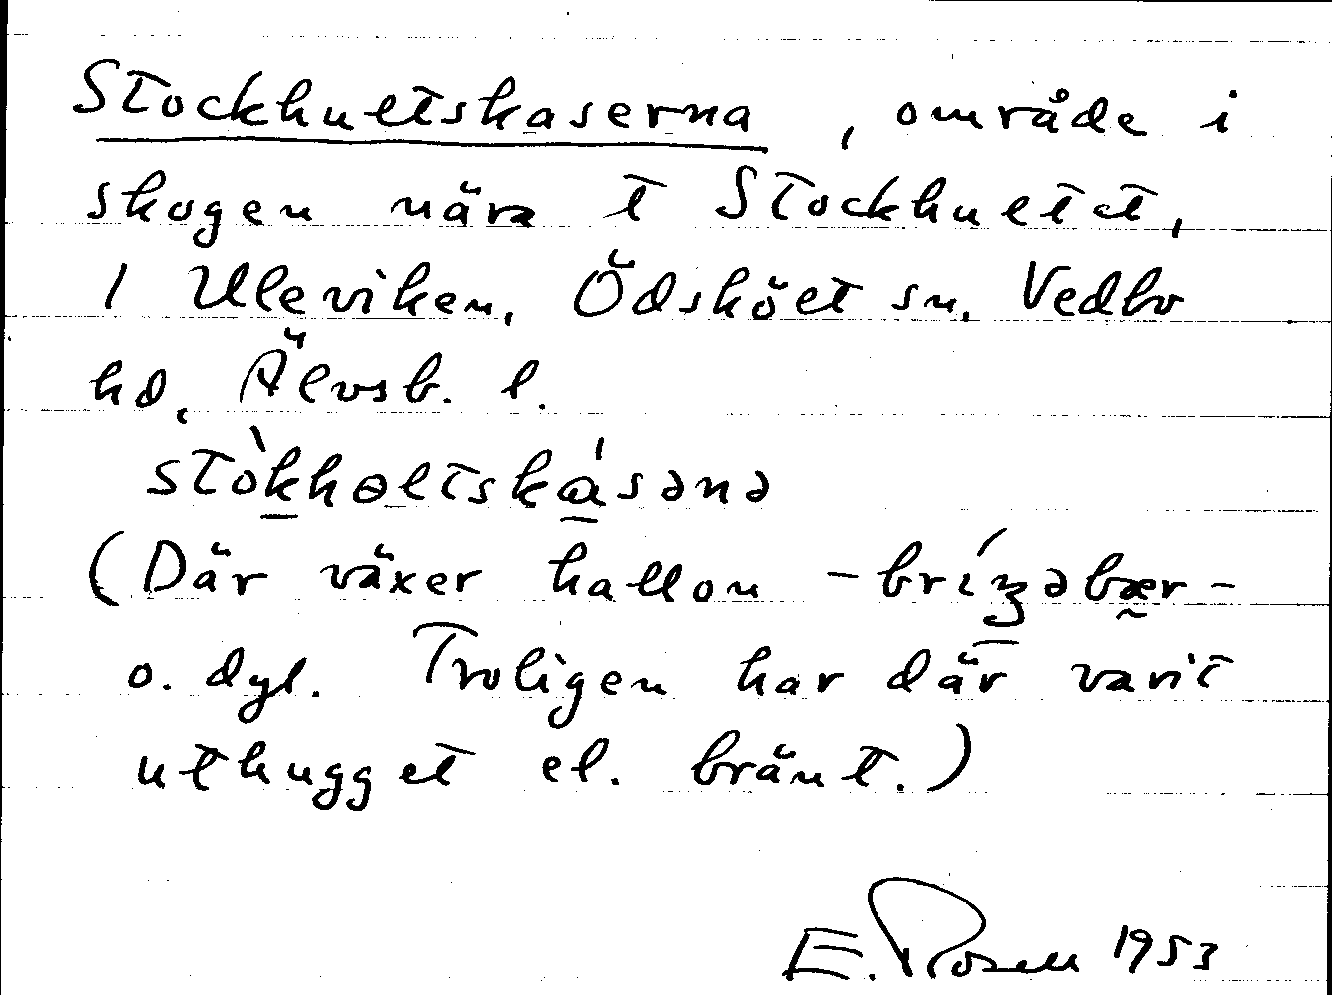 Stockhultskaserna, område i
skogen nära t Stockhultet,
1 Uleviken, Ödskölt sn. Vedbo
hd, Älvsb. l.
stòkhɵltskásənə
(Där växer hallon - bríʒəbær -
o. dyl. Troligen har där varit
uthugget el. bränt.)
E. Rosell 1953